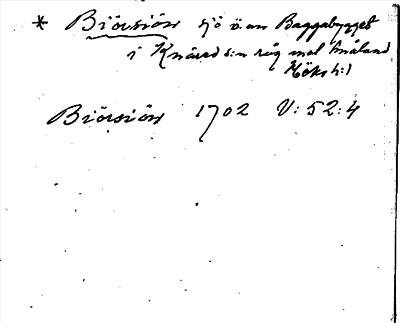 * Biörsiön sjö ö. om Baggabygget
i Knäred s:n råg mot Småland
Höks h:d
Biörsiön 1702 V: 52: 4